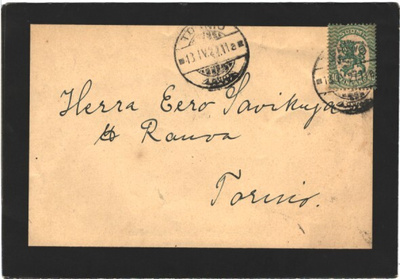 TORNIO
13.IV.22.11a
SUOMI
Herra Eero Savikuja
Rauva
Tornio.